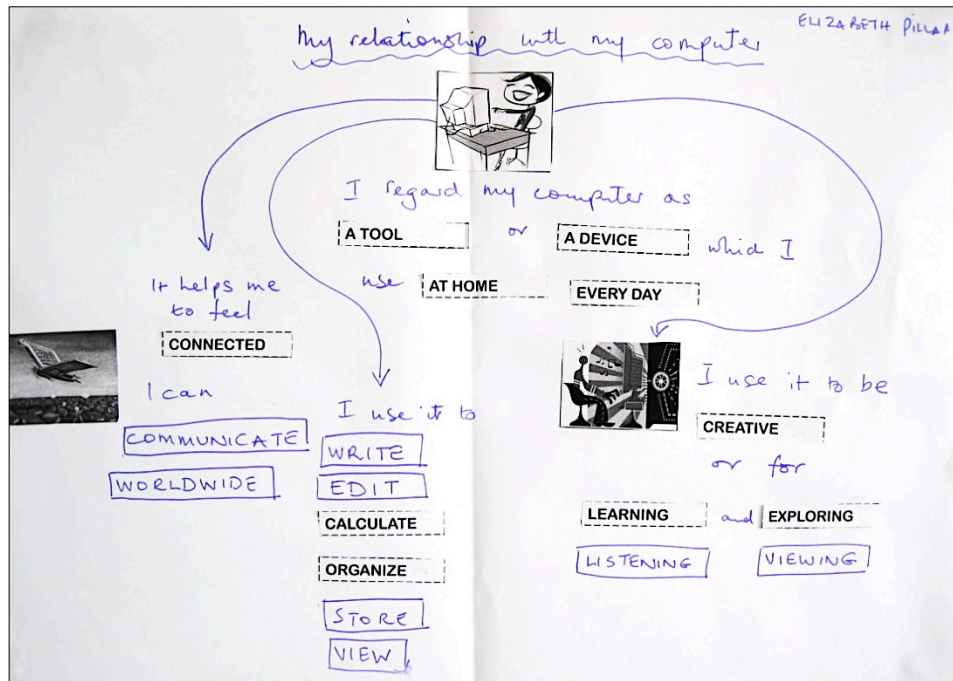 ELIZABETH PILLAR
My relationship with my computer
I regard my computer as
A TOOL or A DEVICE which I
use AT HOME EVERY DAY
It helps me
to feel
CONNECTED
I can
COMMUNICATE
WORLDWIDE
I use it to
WRITE
EDIT
CALCULATE
ORGANIZE
STORE
VIEW
I use it to be
CREATIVE
or for
LEARNING and EXPLORING
LISTENING VIEWING